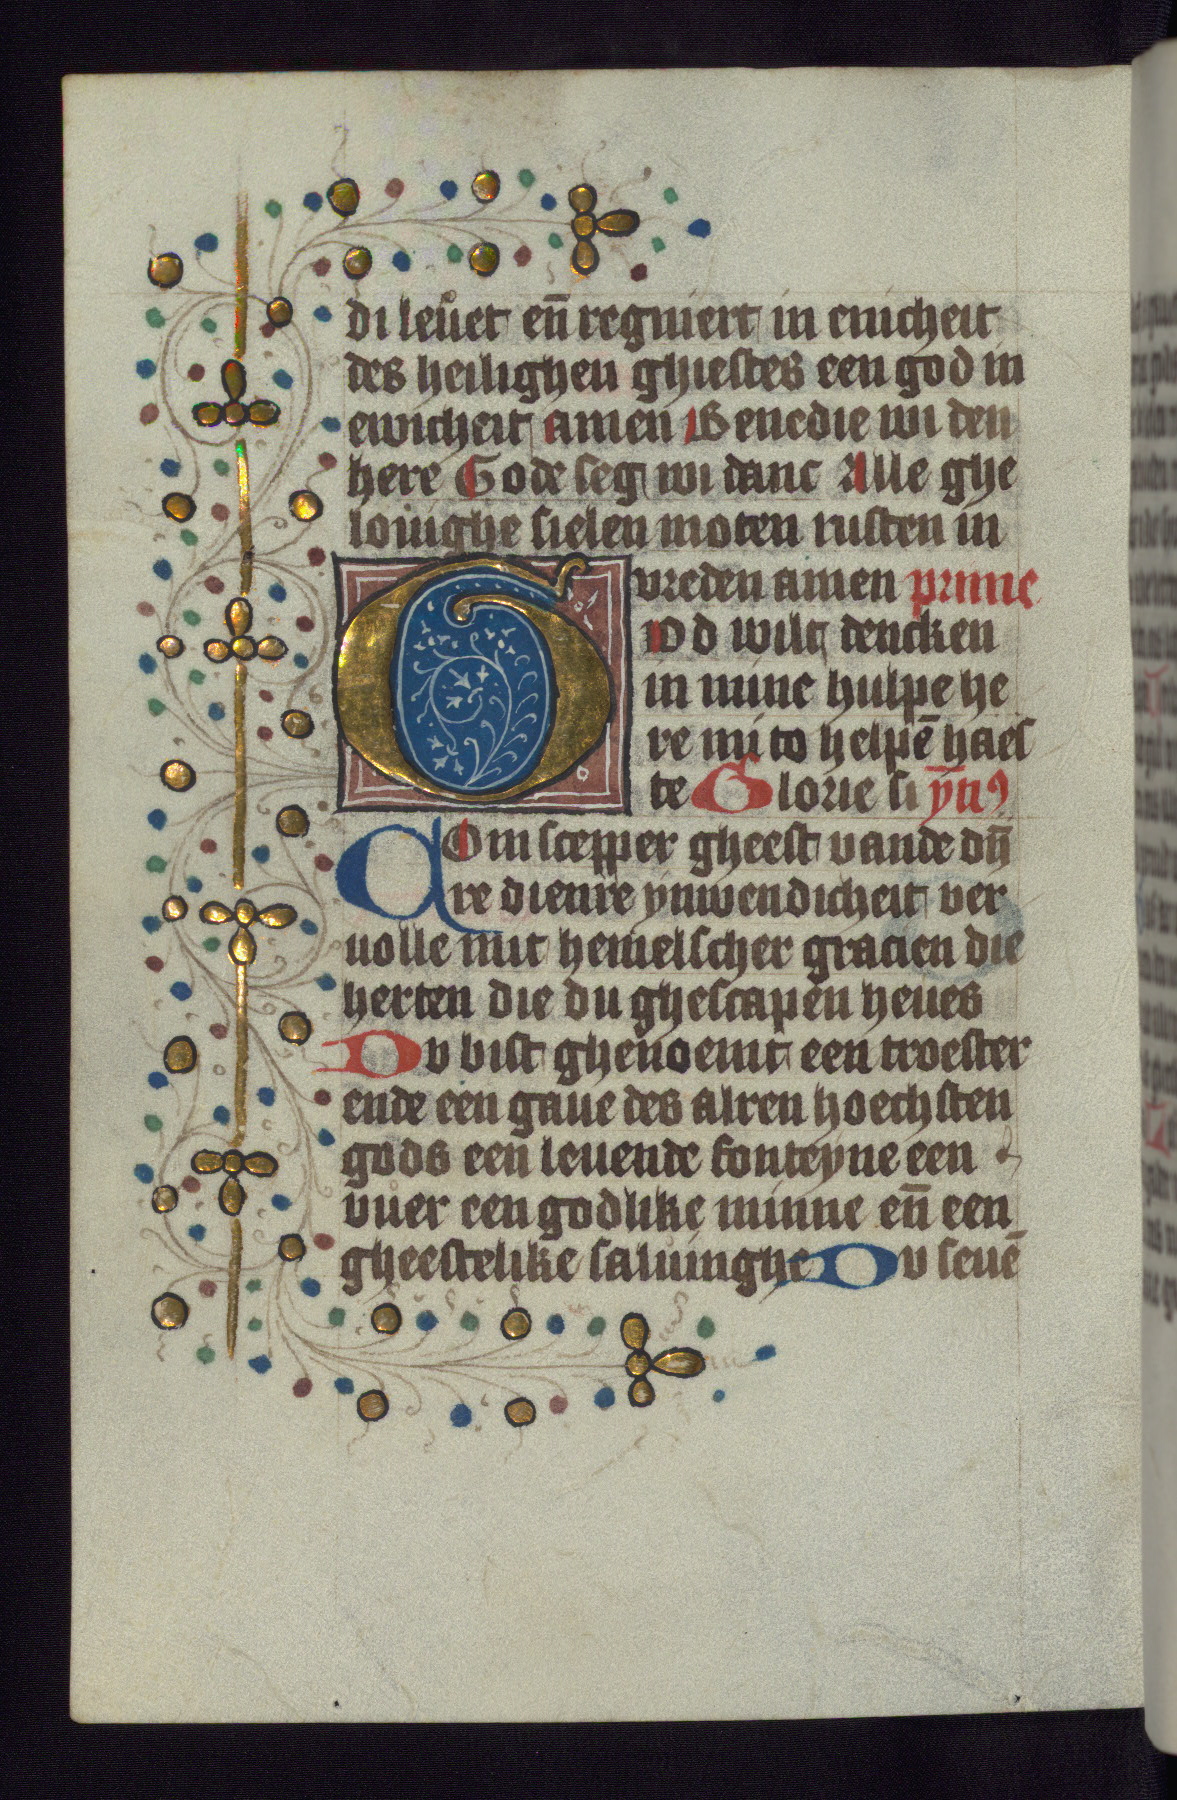 di leuet en̄ regniert in enicheit
des heilighen ghiestes een god in
ewicheit amen Benedie wi den
here Gode seg wi danc Alle ghe
louighe sielen moten rusten in
vreden amen prime
GOd wilt dencken
in mine hulpe he
re mi to helpē haes
te Glorie si ym̄
COm scepper gheest vande dīn
re dienre ynwendicheit ver
uolle mit hemelscher gracien die
herten die du ghescapen heues
Du bist ghenoemt een troester
ende een gaue des alren hoechsten
gods een leuende fonteyne een
vuer een godlike minne en̄ een
gheestelike saluinghe Du seuē